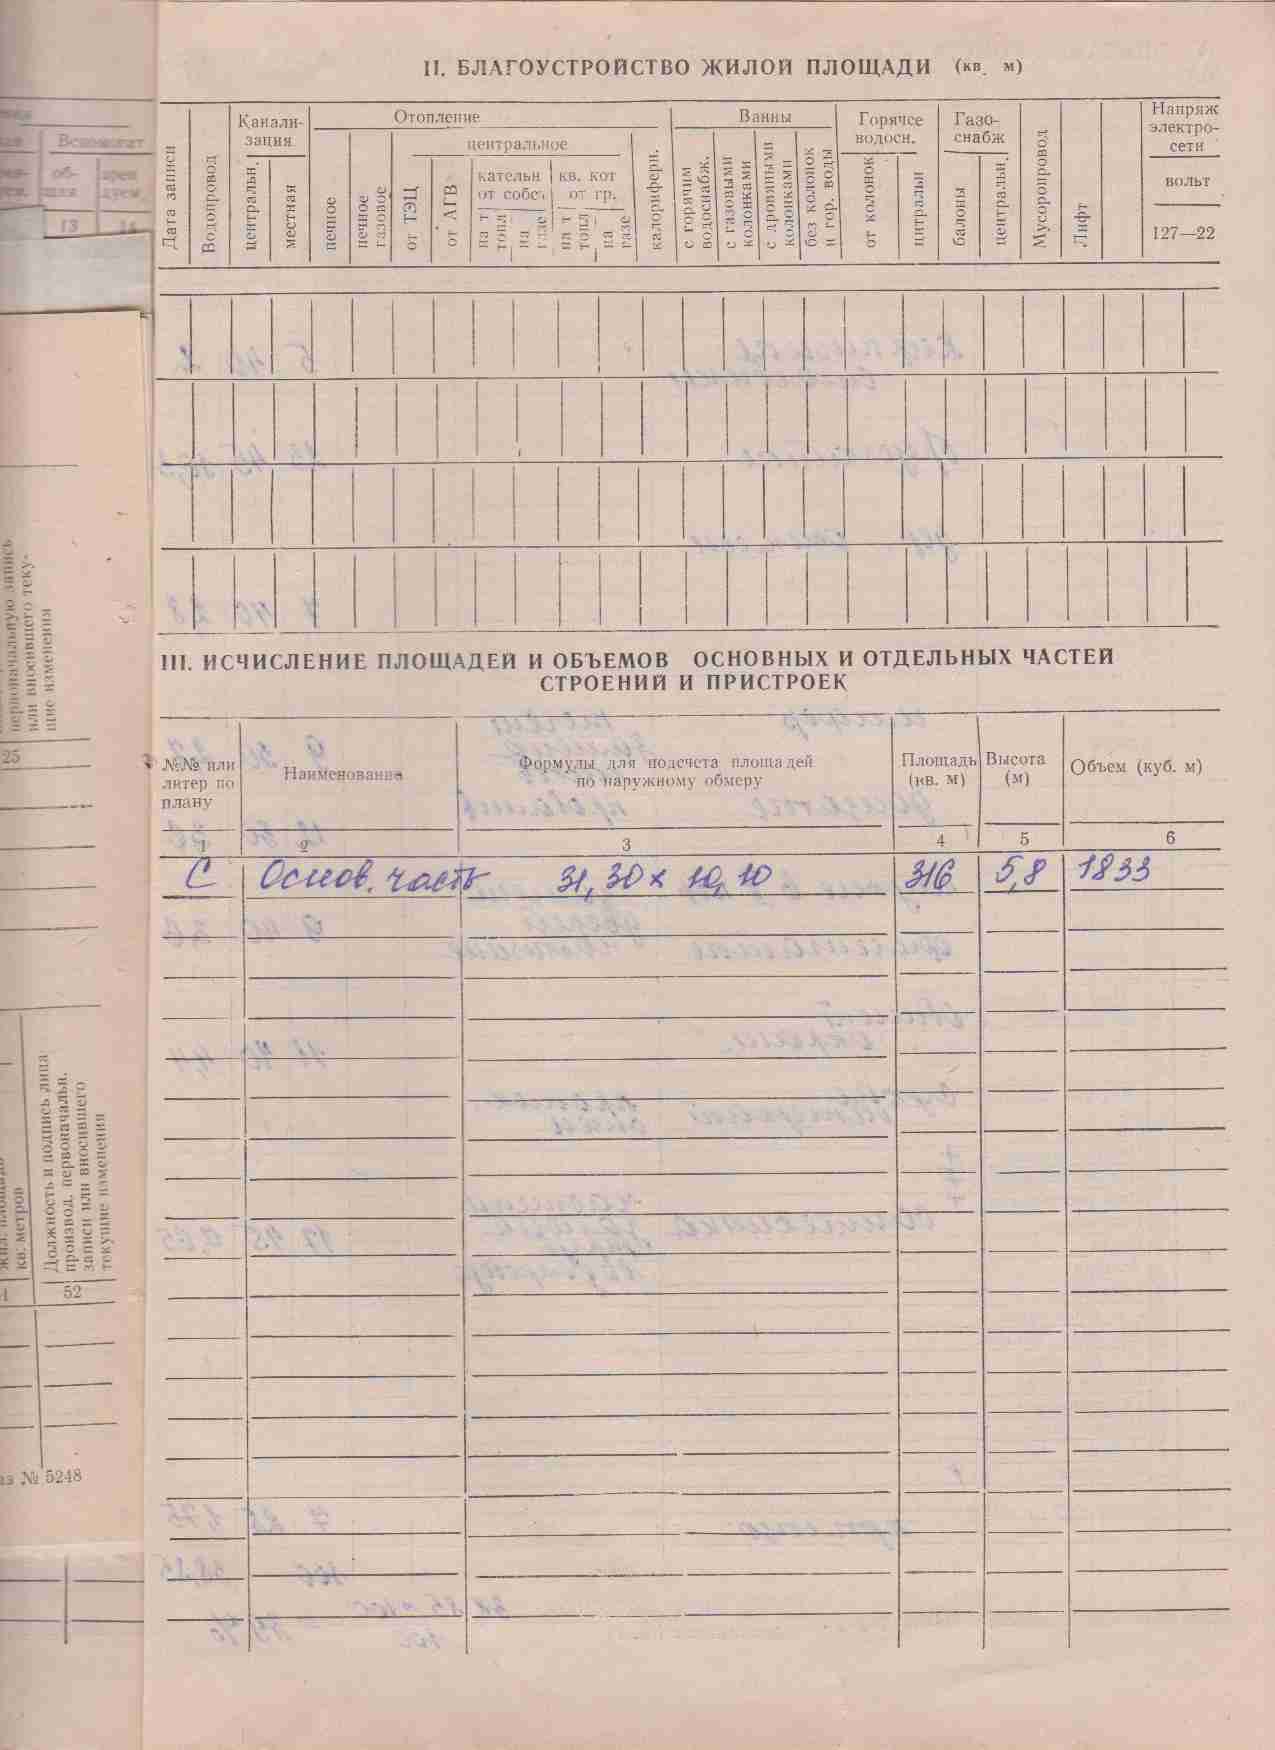 II. БЛАГОУСТРОЙСТВО ЖИЛОЙ ПЛОЩАДИ (кв. м)
Дата записи
Водопровод
Канали-
зация
центральн.
местная
Отопление
печное
печное
газовое
центральное
от ТЭЦ
от АГВ
кательн
от собст
на т
топл
на
газе
кв. кот
от гр.
на т
топл
на
газе
калорифери.
Ванны
с горячим
водоснабж.
с газовыми
колонками
с дровяными
колонками
без колонок
и гор. воды
Горячее
водосн.
от колонок
центральн
Газо-
снабж
балоны
центральн.
Мусоропровод
Лифт
Напряж
электро-
сети
вольт
127—22
III. ИСЧИСЛЕНИЕ ПЛОЩАДЕЙ И ОБЪЕМОВ ОСНОВНЫХ И ОТДЕЛЬНЫХ ЧАСТЕЙ
СТРОЕНИЙ И ПРИСТРОЕК
№№ или
литер по
плану
Наименование
Формулы для подсчета площадей
по наружному обмеру
Площадь
(кв. м)
Высота
(м)
Объем (куб. м)
1 2 3 4 5 6
С Основ. часть 31,30 х 10,10 316 5,8 1833
Вспомогат
об-
щая
арен
дуем.
13 14
первоначальную запись
или вносившего теку-
щие изменения
25
жил. площадь
кв. метров
Должность и подпись лица
производ. первоначальн.
записи или вносившего
текущие изменения
52
аз № 5248